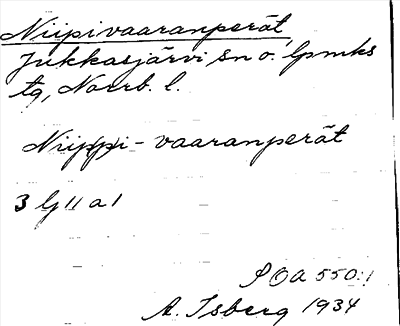 Niipivaaranperät,
Jukkasjärvi sn o. lpmks
tg, Norrb. l.
Niip(p)i-vaaranperät
3 lj 11 a 1
SOA 550:1
A. Isberg 1934